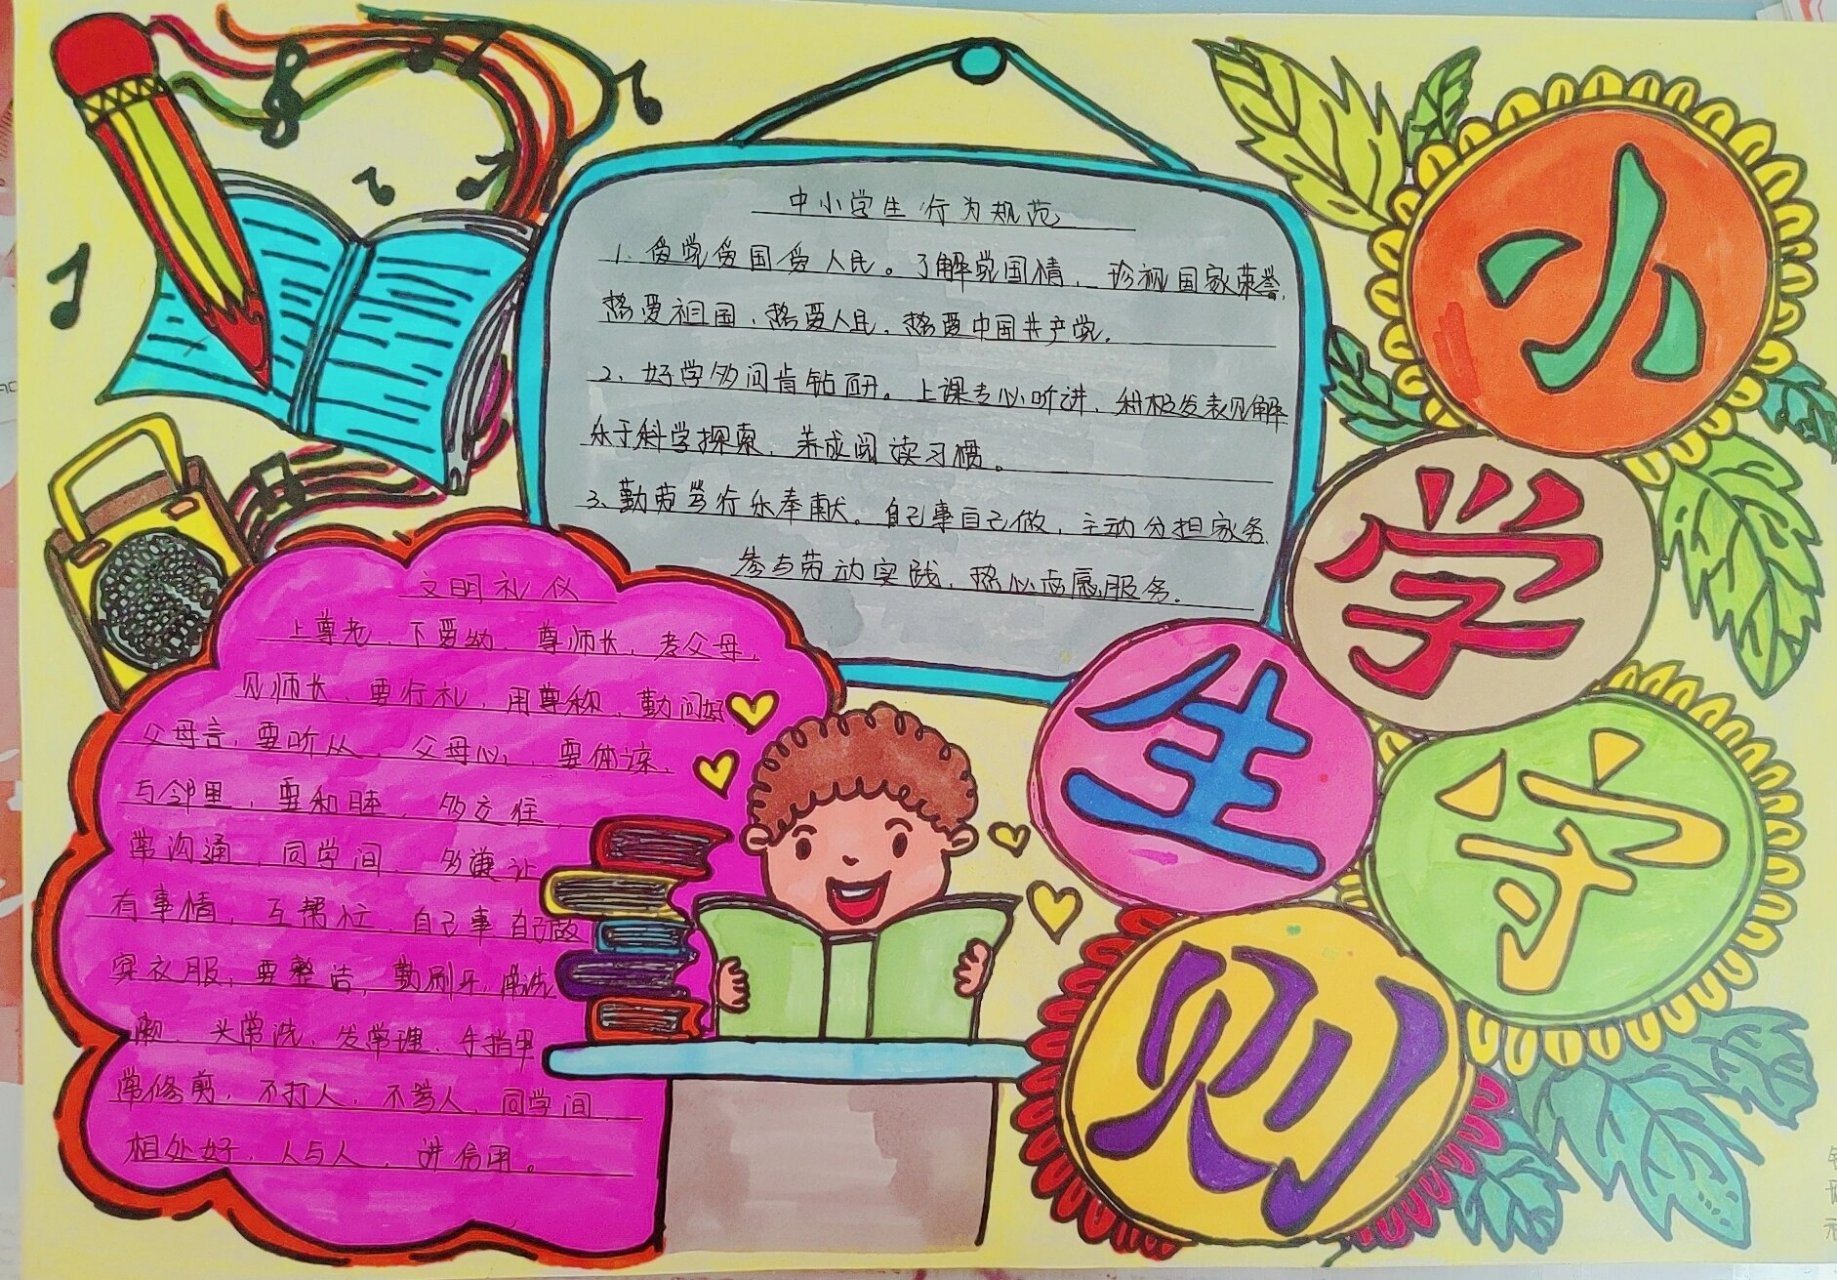 小学生守则
中小学生行为规范
1、爱党爱国爱人民。了解党国情，珍视国家荣誉，
热爱祖国，热爱人民，热爱中国共产党。
2、好学多问肯钻研。上课专心听讲，积极发表见解
乐于科学探索，养成阅读习惯。
3、勤劳笃行乐奉献。自己事自己做，主动分担家务，
参与劳动实践，热心志愿服务。
文明礼仪
上尊老，下爱幼，尊师长，孝父母，
见师长，要行礼，用尊称，勤问好
父母言，要听从，父母心，要体谅，
与邻里，要和睦，多交往，
常沟通，同学间，多谦让
有事情，互帮忙，自己事自己做
穿衣服，要整洁，勤刷牙，常洗
头常洗，发常理，手指甲
常修剪，不打人，不骂人，同学间
相处好，人与人，讲信用。